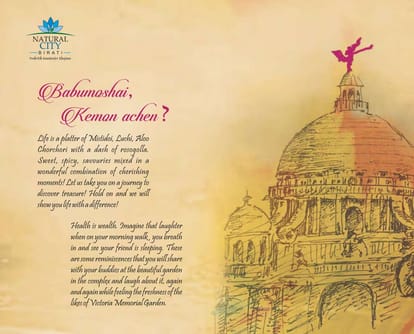 NATURAL
CITY
BIRATI
Babumoshai,
Kemon achen?
Life is a platter of Mistidoi, Luchi, Aloo
Chorchori with a dash of rosogolla.
Sweet, spicy, savouries mixed in a
wonderful combination of cherishing
moments! Let us take you on a journey to
discover treasure! Hold on and we will
show you life with a difference!
Health is wealth. Imagine that laughter
when on your morning walk, you breath
in and see your friend is sleeping. These
are some reminiscences that you will share
with your buddies at the beautiful garden
in the complex and laugh about it, again
and again while feeling the freshness of the
likes of Victoria Memorial Garden.